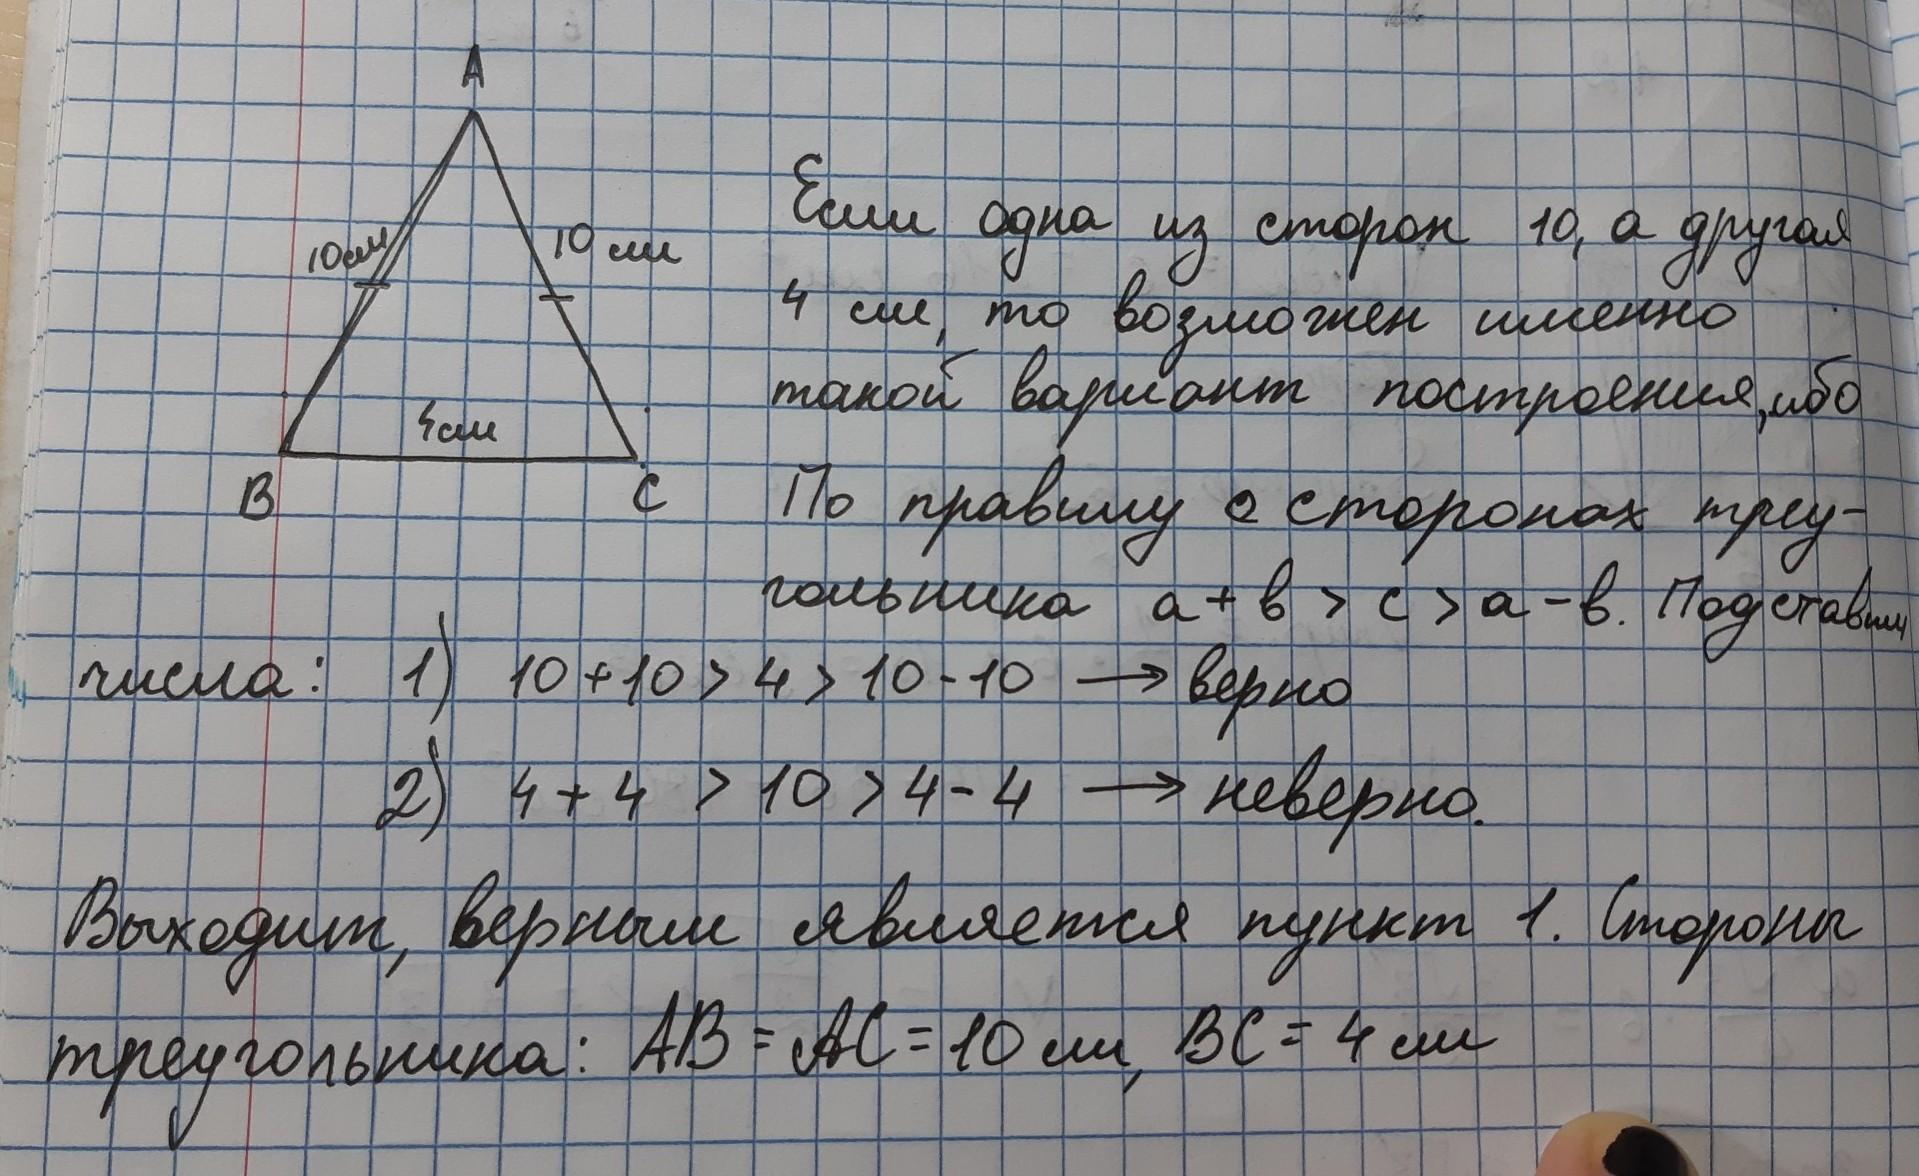 A
10см
10 см
4см
B
C
Если одна из сторон 10, а другая
4 см, то возможен именно
такой вариант построения, ибо
По правилу о сторонах треу-
гольника a + b > c > a - b. Подставим
числа: 1) 10 + 10 > 4 > 10 - 10 → верно
2) 4 + 4 > 10 > 4 - 4 → неверно.
Выходит, верным является пункт 1. Стороны
треугольника: AB = AC = 10 см, BC = 4 см